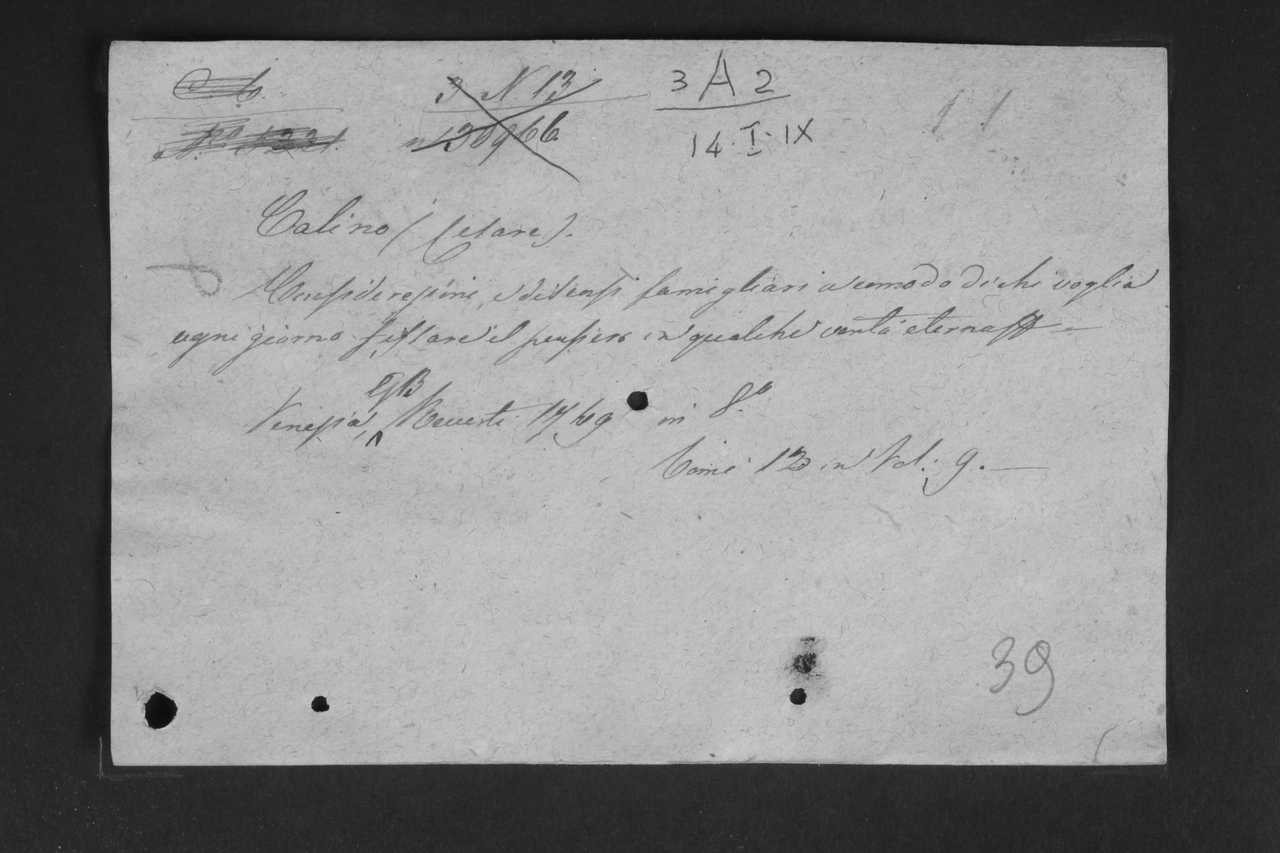 3 N 13
3 A 2
30966
14·I·IX
Calino (Cesare).
Considerazioni, e discorsi famigliari a comodo di chi voglia
ogni giorno fissare il pensiero in qualche verità eterna
Venezia, GB Recurti 1769 in 8.°
Tomi 12 in Vol. 9.
39